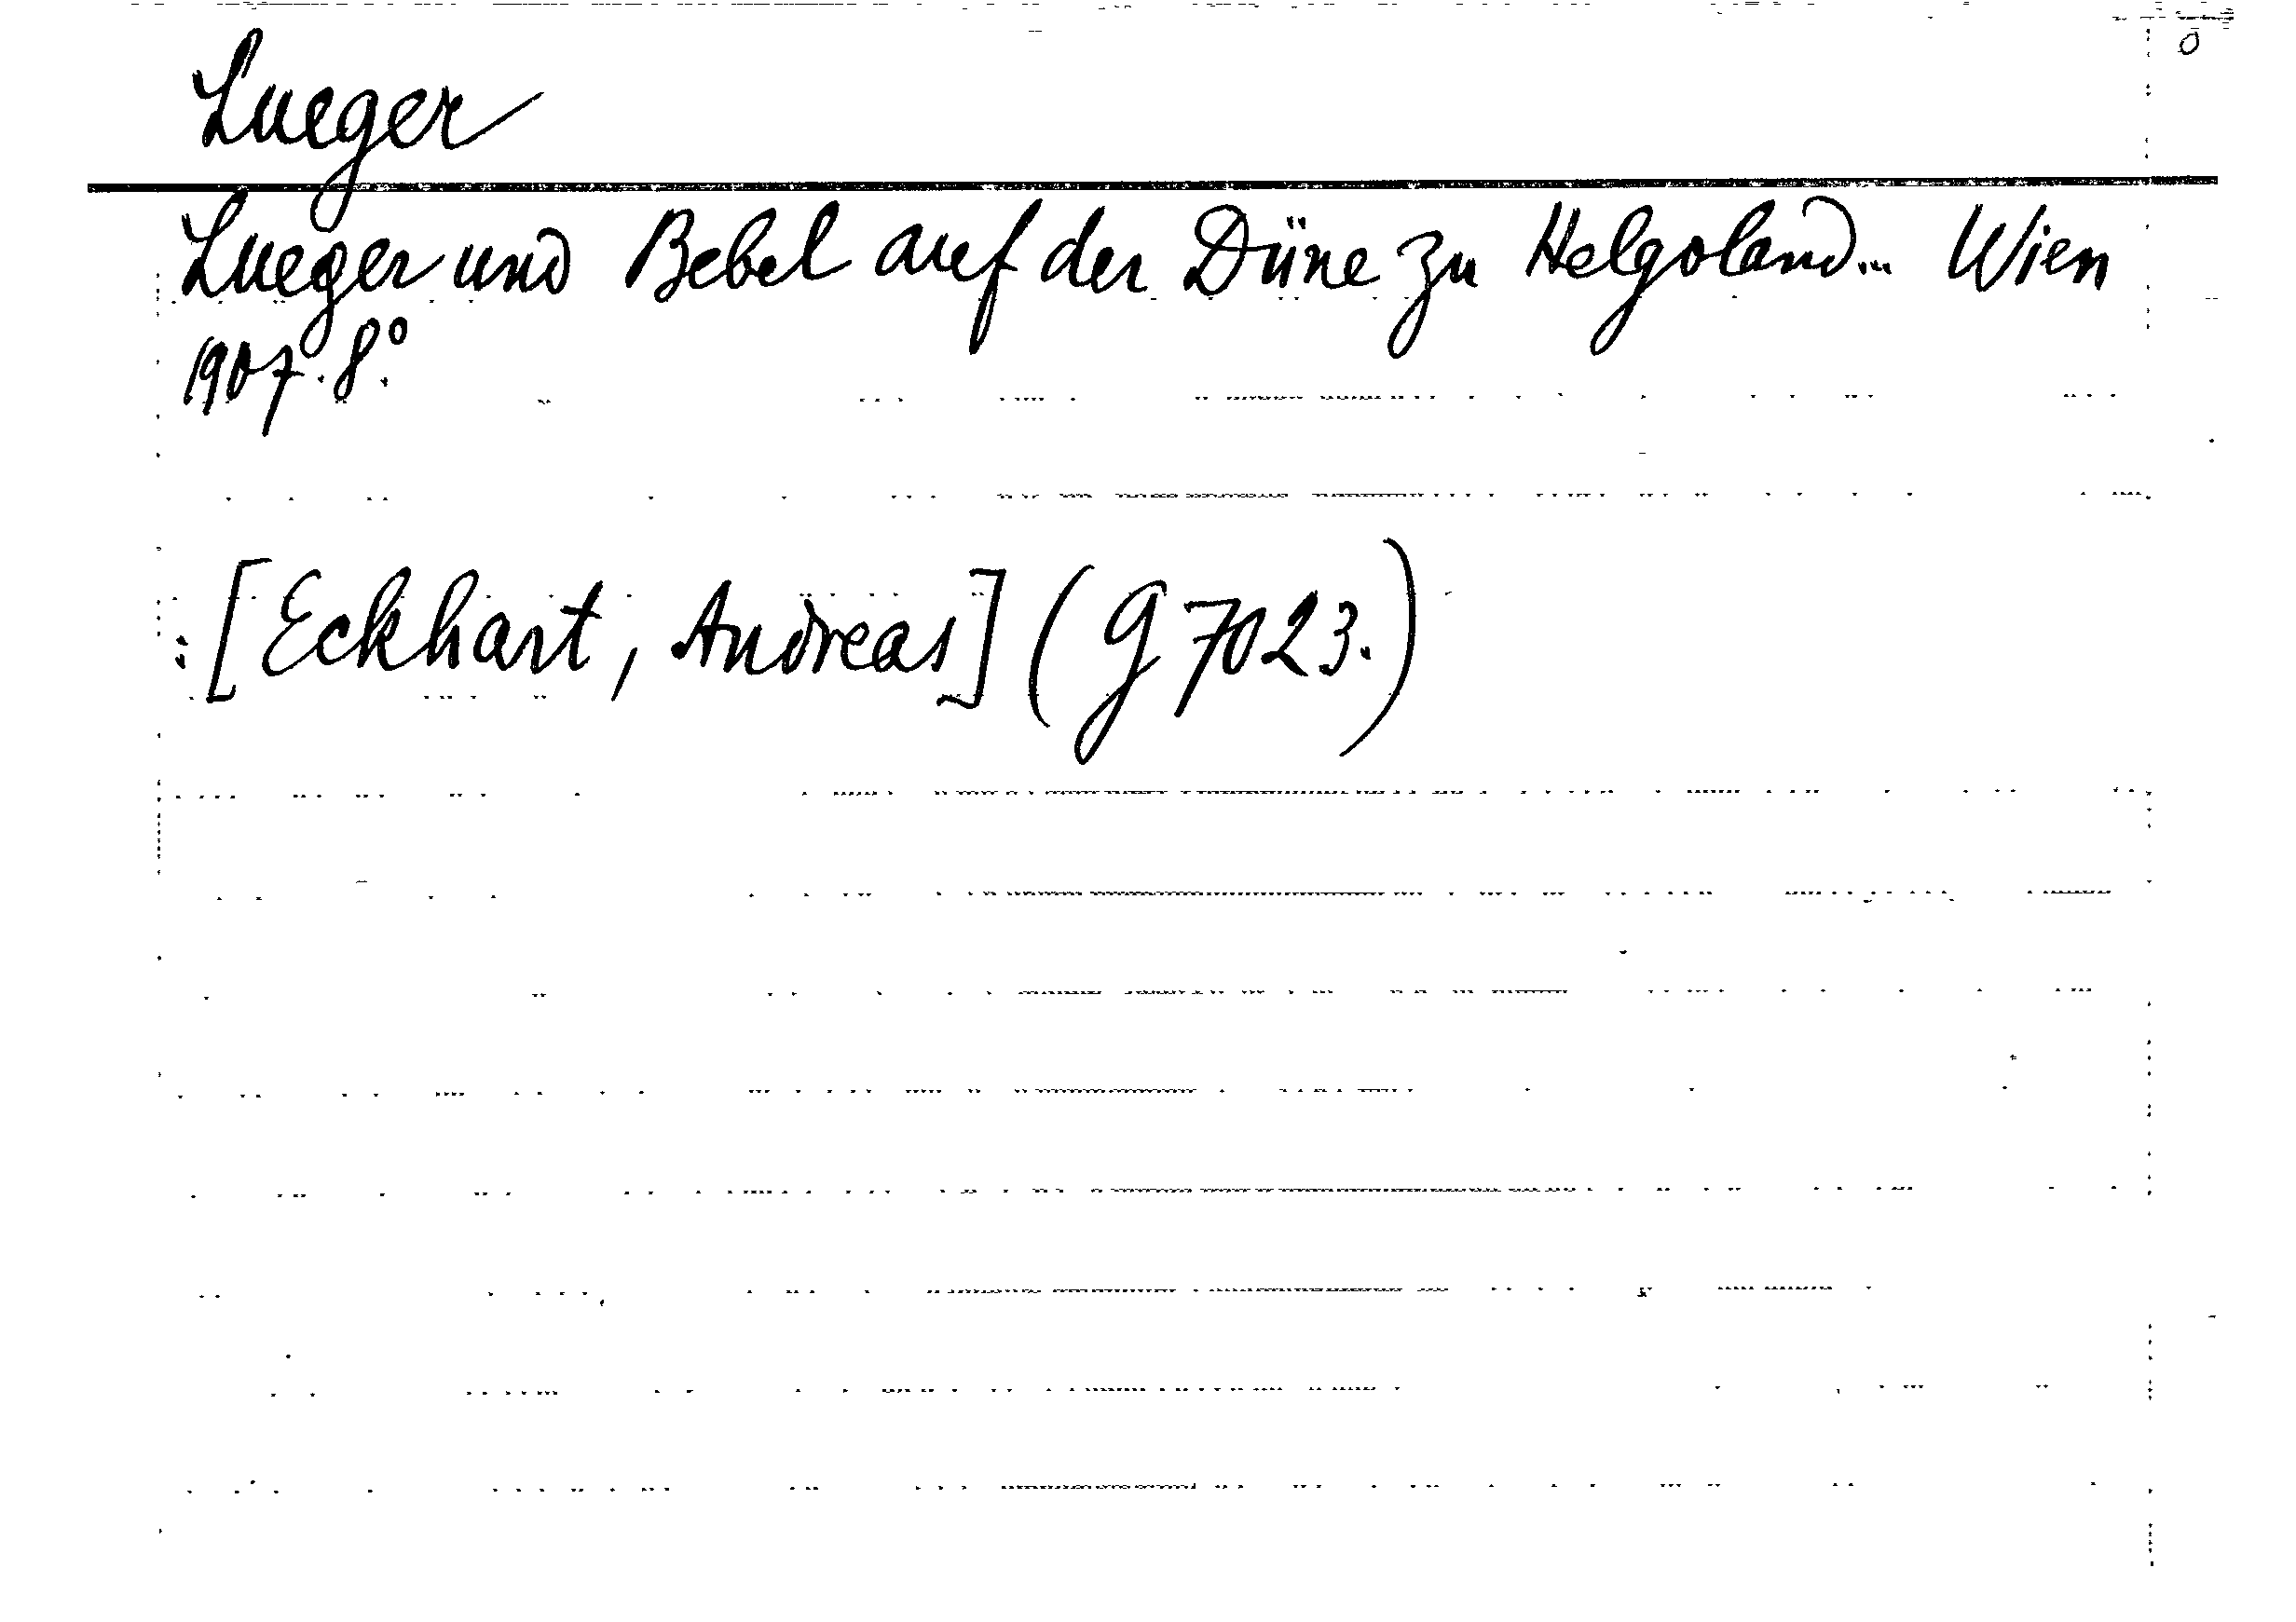 Lueger
Lueger und Bebel auf der Düne zu Helgoland... Wien
1907. 8°.
:[Eckhart, Andreas] (G 7023.)